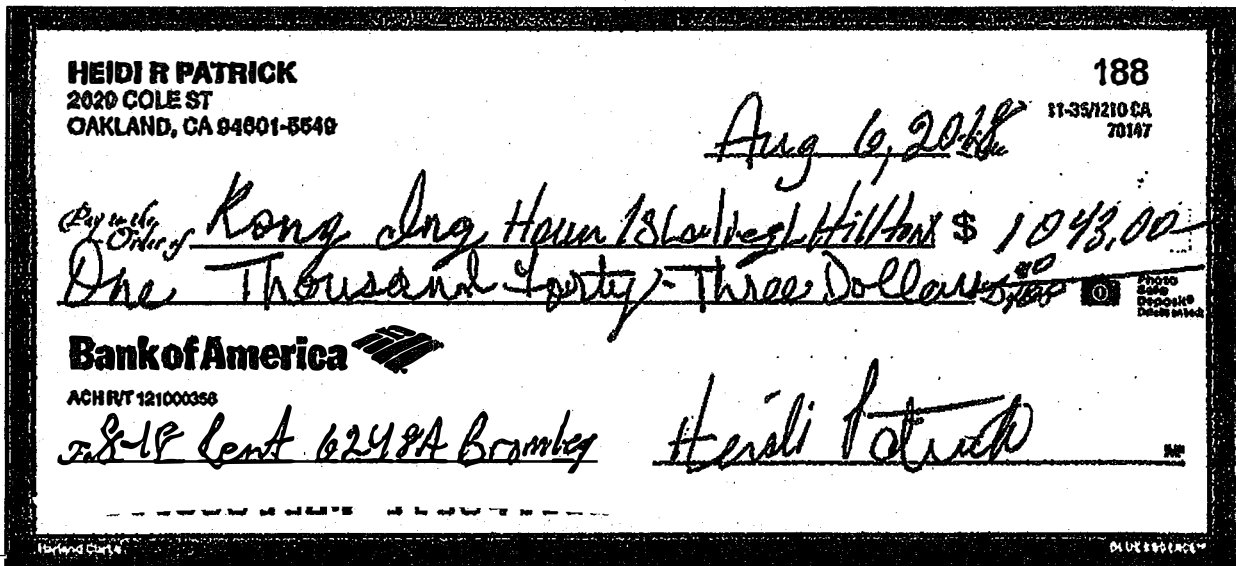 HEIDI R PATRICK
188
2629 COLE ST
OAKLAND, CA 94601-5549
11-35/1210 CA
70147
Aug 6, 2018
Pay to the Order of Kong Ing Houn $ 1043.00
One Thousand Forty-Three Dollars
Photo
Safe
Deposit®
Details on back
Bank of America
ACH R/T 121000358
8-18 Rent 6248A Bromley
Heidi Patrick
MP
Harland Clarke